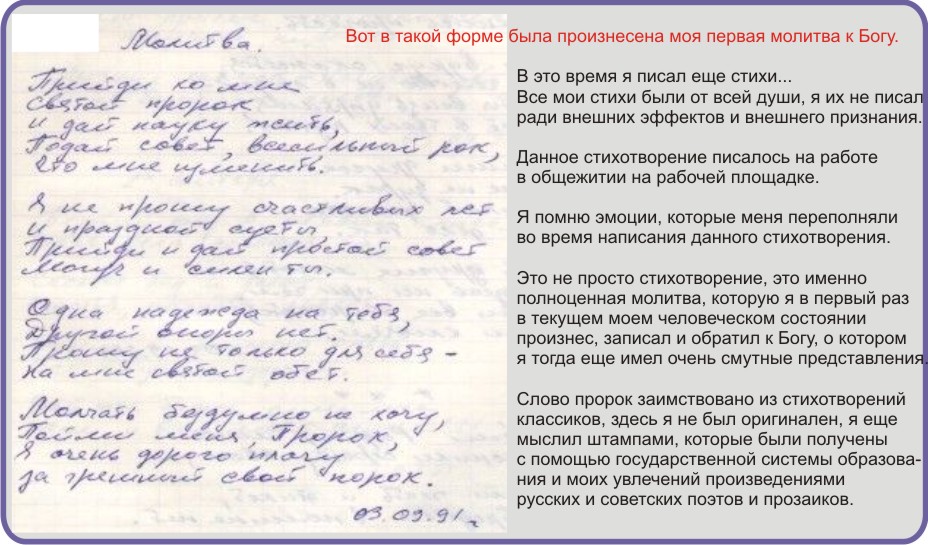 Вот в такой форме была произнесена моя первая молитва к Богу.
Молитва.
Прийди ко мне
святой пророк
и дай науку жить,
Подай совет, всесильный рок,
Что мне изменить.
Я не прошу счастливых лет
и праздной суеты,
Прийди и дай простой совет
Могуч и силен ты.
Одна надежда на тебя,
Другой опоры нет.
Прошу не только для себя -
на мне святой обет.
Молчать бездумно не хочу,
Пойми меня, Пророк,
Я очень дорого плачу
за грешный свой порок.
03.09.91 г
В это время я писал еще стихи...
Все мои стихи были от всей души, я их не писал
ради внешних эффектов и внешнего признания.
Данное стихотворение писалось на работе
в общежитии на рабочей площадке.
Я помню эмоции, которые меня переполняли
во время написания данного стихотворения.
Это не просто стихотворение, это именно
полноценная молитва, которую я в первый раз
в текущем моем человеческом состоянии
произнес, записал и обратил к Богу, о котором
я тогда еще имел очень смутные представления.
Слово пророк заимствовано из стихотворений
классиков, здесь я не был оригинален, я еще
мыслил штампами, которые были получены
с помощью государственной системы образова-
ния и моих увлечений произведениями
русских и советских поэтов и прозаиков.